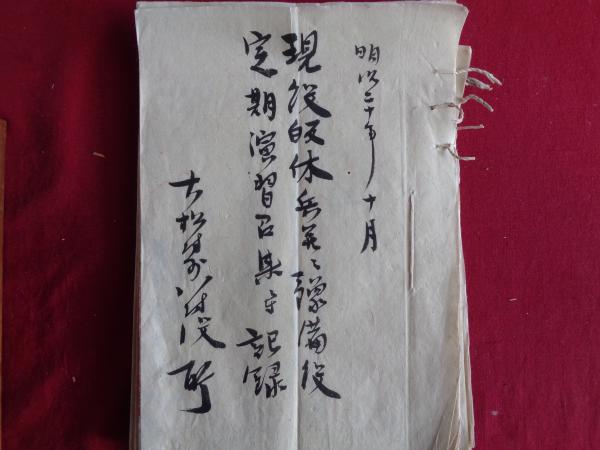 明治二十年十月
現役帰休兵並ニ豫備役
定期演習召集ニ 記録
大松 外 村役所